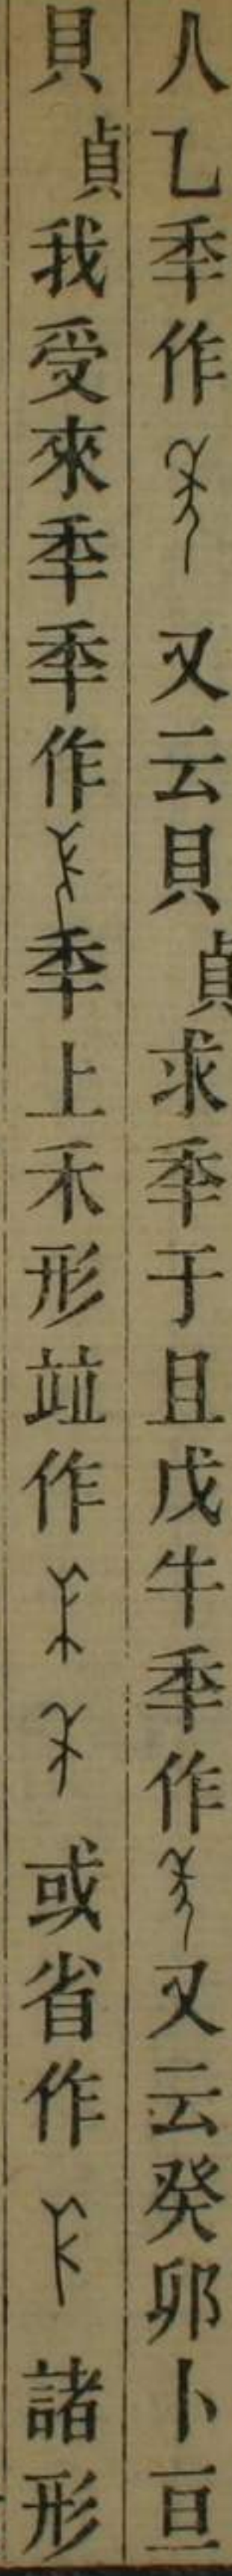 人乙秊作又云貝貞求秊于且戊牛秊作又云癸卯卜亘
貝貞我受來秊秊作秊上禾形竝作或省作諸形